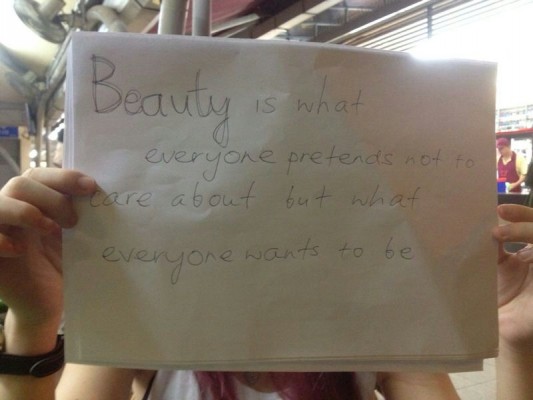 Beauty is what
everyone pretends not to
care about but what
everyone wants to be